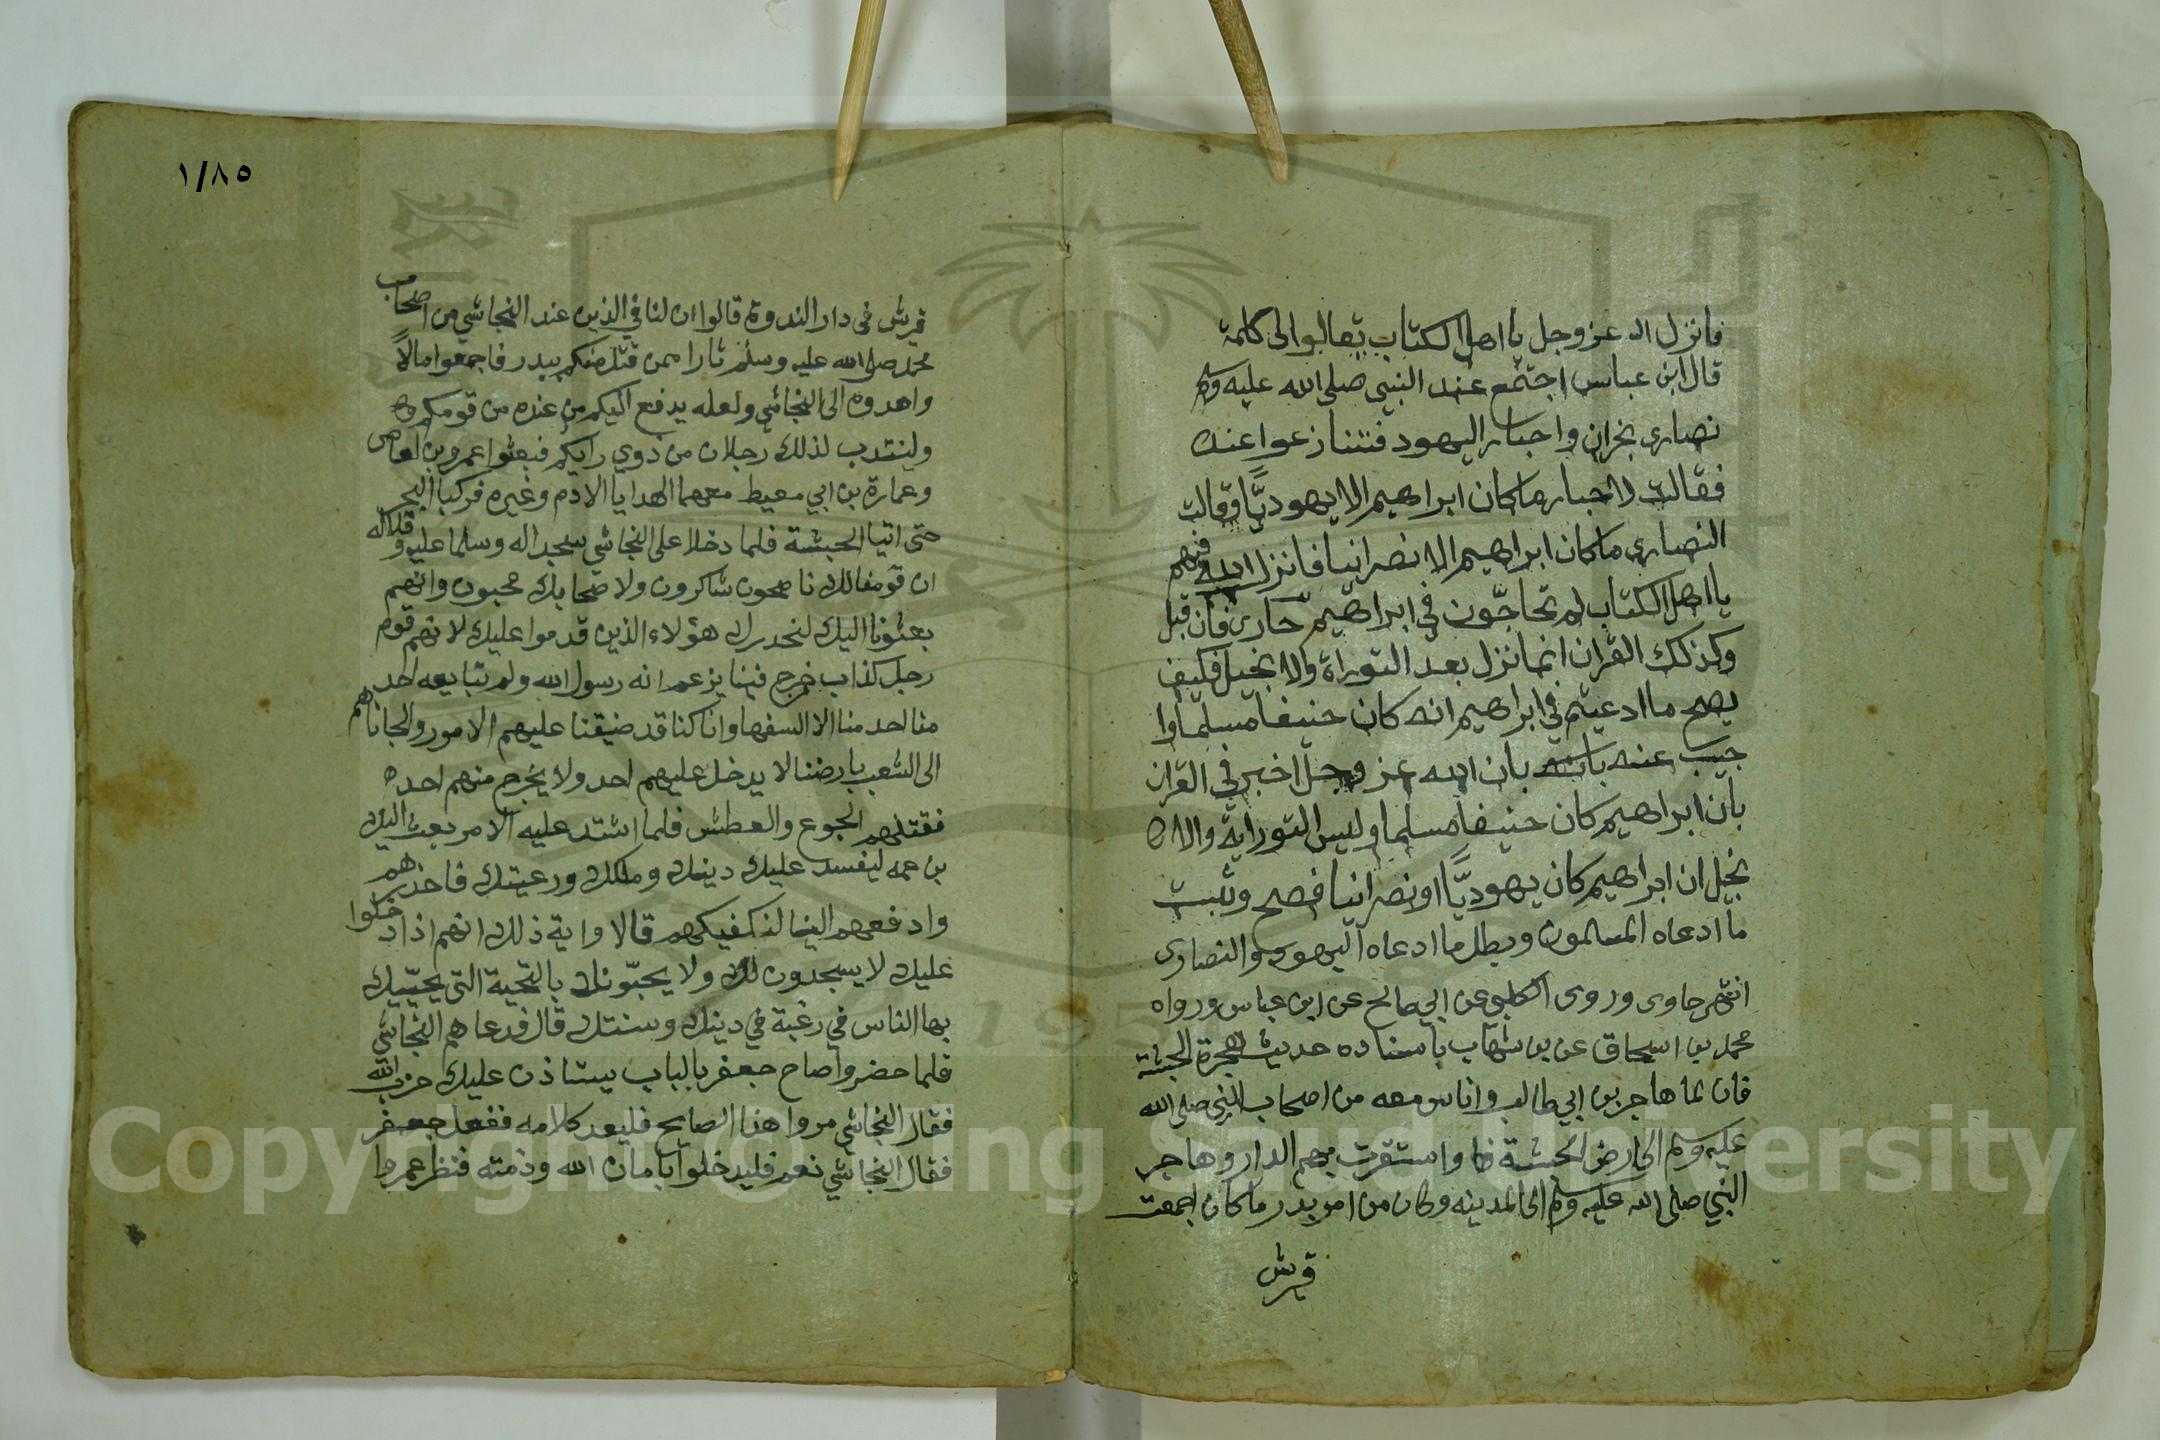 فانزل الله عز وجل يا اهل الكتاب تعالوا الى كلمة
قال ابن عباس اجتمع عند النبي صلى الله عليه وسلم
نصارى نجران واحبار اليهود فتنازعوا عنده
فقالت لاحبار ما كان ابراهيم الا يهوديًّا وقالت
النصارى ما كان ابراهيم الا نصرانيا فانزل الله فيهم
يا اهل الكتاب لم تحاجّون في ابراهيم حاوى فان قيل
وكذلك القران انما نزل بعد التوراة والانجيل فكيف
يصح ما ادعيتم في ابراهيم انه كان حنيفا مسلما وا
جيب عنه بانه بان الله عز وجل اخبر في القران
بان ابراهيم كان حنيفا مسلما وليس التوراية والان
نجيل ان ابراهيم كان يهوديًّا او نصرانيا فصح وثبت
ما ادعاه المسلمون وبطل ما ادعاه اليهود والنصارى
انتهى حاوى وروى الكلبي عن ابي صالح عن ابن عباس ورواه
محمد بن اسحاق عن بن شهاب باسناده حديث هجرة الحبشة
فان لما هاجر بن ابي طالب واناس معه من اصحاب النبي صلى الله
عليه وسلم الى ارض الحبشة واستقرت بهم الدار وهاجر
النبي صلى الله عليه وسلم الى المدينه وكان من امر بدر ما كان اجمعت
قريش
١/٨٥
قريش في دار الندوة قالوا ان لنا في الذين عند النجاشي من اصحاب
محمد صلى الله عليه وسلم ثارا ممن قتل منكم ببدر فاجمعوا مالًا
واهدوه الى النجاشي ولعله يدفع اليكم من عنده من قومكم
ولينتدب لذلك رجلان من ذوي رايكم فبعثوا عمرو بن لعاص
وعمارة بن ابي معيط معهما الهدايا الادم وغيره فركبا البحر
حتى اتيا الحبشة فلما دخلا على النجاشي سجدا له وسلما عليه وقالا له
ان قومنا لك ناصحون شاكرون ولاصحابك محبون وانهم
بعثونا اليك لنحذرك هؤلاء الذين قدموا عليك لانهم قوم
رجل كذاب خرج فينا يزعم انه رسول الله ولم يتابعه احد
منا احد منا الا السفها وانا كنا قد ضيقنا عليهم الامور والجاناهم
الى الشعب بارضنا لا يدخل عليهم احد ولا يخرج منهم احد
فقتلهم الجوع والعطش فلما اشتد عليه الامر بعث اليك
بن عمه ليفسد عليك دينك وملكك ورعيتك فاحذرهم
وادفعهم الينا لنكفيكهم قالا واية ذلك انهم اذا دخلوا
عليك لا يسجدون لك ولا يحيّونك بالتحية التي يحيّيك
بها الناس في رغبة في دينك وسنتك قال فدعاهم النجاشي
فلما حضروا صاح جعفر بالباب يستاذن عليك حزب الله
فقال النجاشي مروا هذا الصايح فليعد كلامه ففعل جعفر
فقال النجاشي نعم فليدخلوا بامان الله وذمته فنظر عمر
Copyright © King Saud University